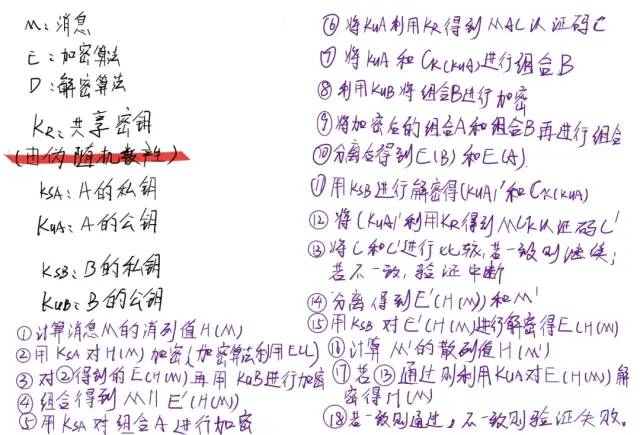 M: 消息
E: 加密算法
D: 解密算法
KR: 共享密钥
(由伪随机数产生)
KSA: A的私钥
KUA: A的公钥
KSB: B的私钥
KUB: B的公钥
①计算消息M的消列值H(M)
②用KSA对H(M)加密(加密算法利用ELL)
③对②得到的E(H(M)再用KUB进行加密
④组合得到M||E'(H(M)
⑤用KSA对组合A进行加密
⑥将KUA利用KR得到MAC认证码C
⑦将KUA和CK(KUA)进行组合B
⑧利用KUB将组合B进行加密
⑨将加密后的组合A和组合B再进行组合
⑩分离后得到E(B)和E(A)
⑪用KSB进行解密得(KUA)'和CK(KUA)
⑫将(KUA)'利用KR得到MAC认证码C'
⑬将C和C'进行比较,若一致则继续;
若不一致,验证中断
⑭分离得到E'(H(M))和M'
⑮用KSB对E'(H(M)进行解密得E(H(M)
⑯计算M'的散列值H(M')
⑰若⑬通过则利用KUA对E(H(M))解
密得H(M)
⑱若一致则通过,不一致则验证失败。